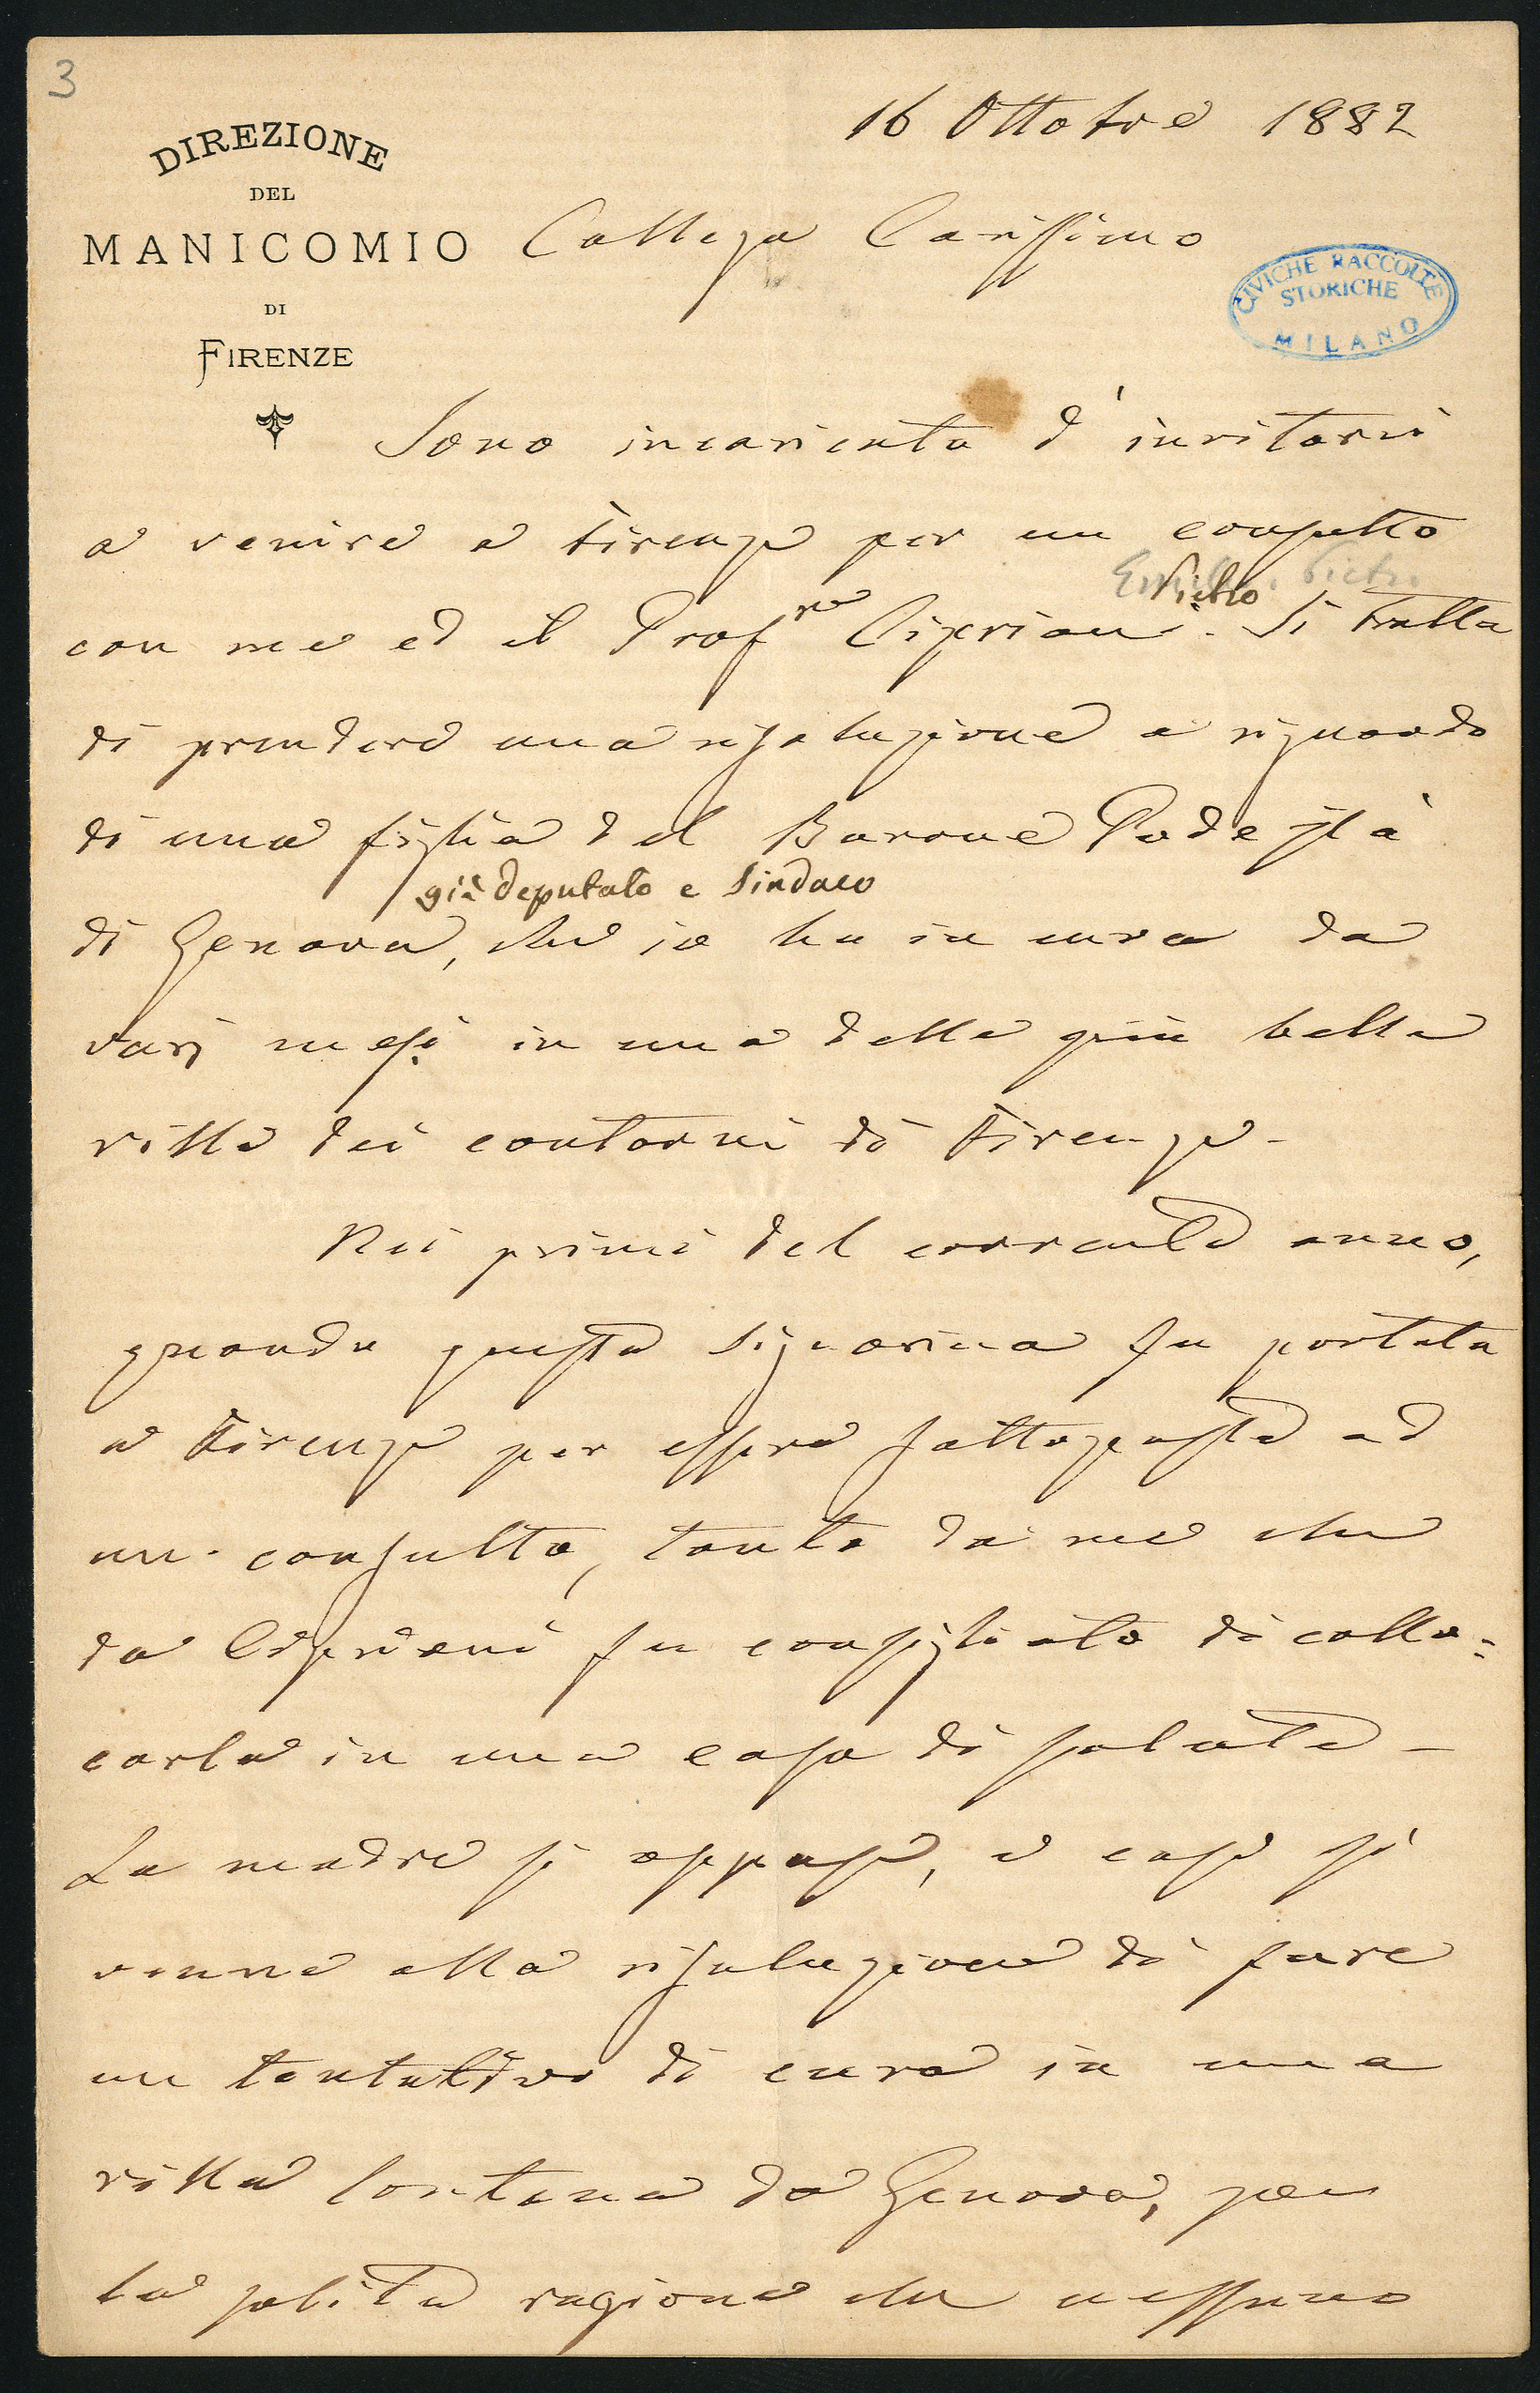 3
16 Ottobre 1882
DIREZIONE
DEL
MANICOMIO
DI
FIRENZE
Collega Carissimo
CIVICHE RACCOLTE
STORICHE
MILANO
Sono incaricato d'invitarvi
a venire a Firenze per un consulto
Pietro
con me ed il Prof.re Cipriani. Si tratta
di prendere una risoluzione a riguardo
di una figlia del Barone Podestà
già deputato e Sindaco
di Genova, che io ho in cura da
varj mesi in una delle più belle
ville dei contorni di Firenze -
Nei primi del corrente anno,
quando questa Signorina fu portata
a Firenze per essere sottoposta ad
un consulto, tanto da me che
da Cipriani fu consigliato di collo=
carla in una casa di salute -
La madre si oppose, e così si
venne alla risoluzione di fare
un tentativo di cura in una
villa lontana da Genova, per
la solita ragione che nessuno